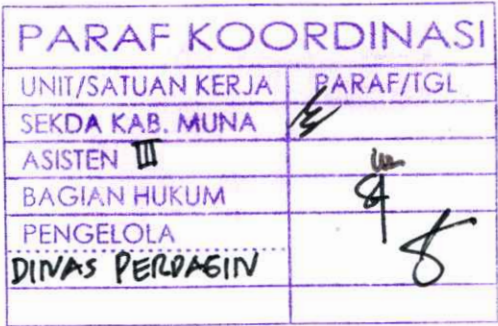 PARAF KOORDINASI
UNIT/SATUAN KERJA PARAF/TGL
SEKDA KAB. MUNA
ASISTEN III
BAGIAN HUKUM
PENGELOLA
DINAS PERDAGIN